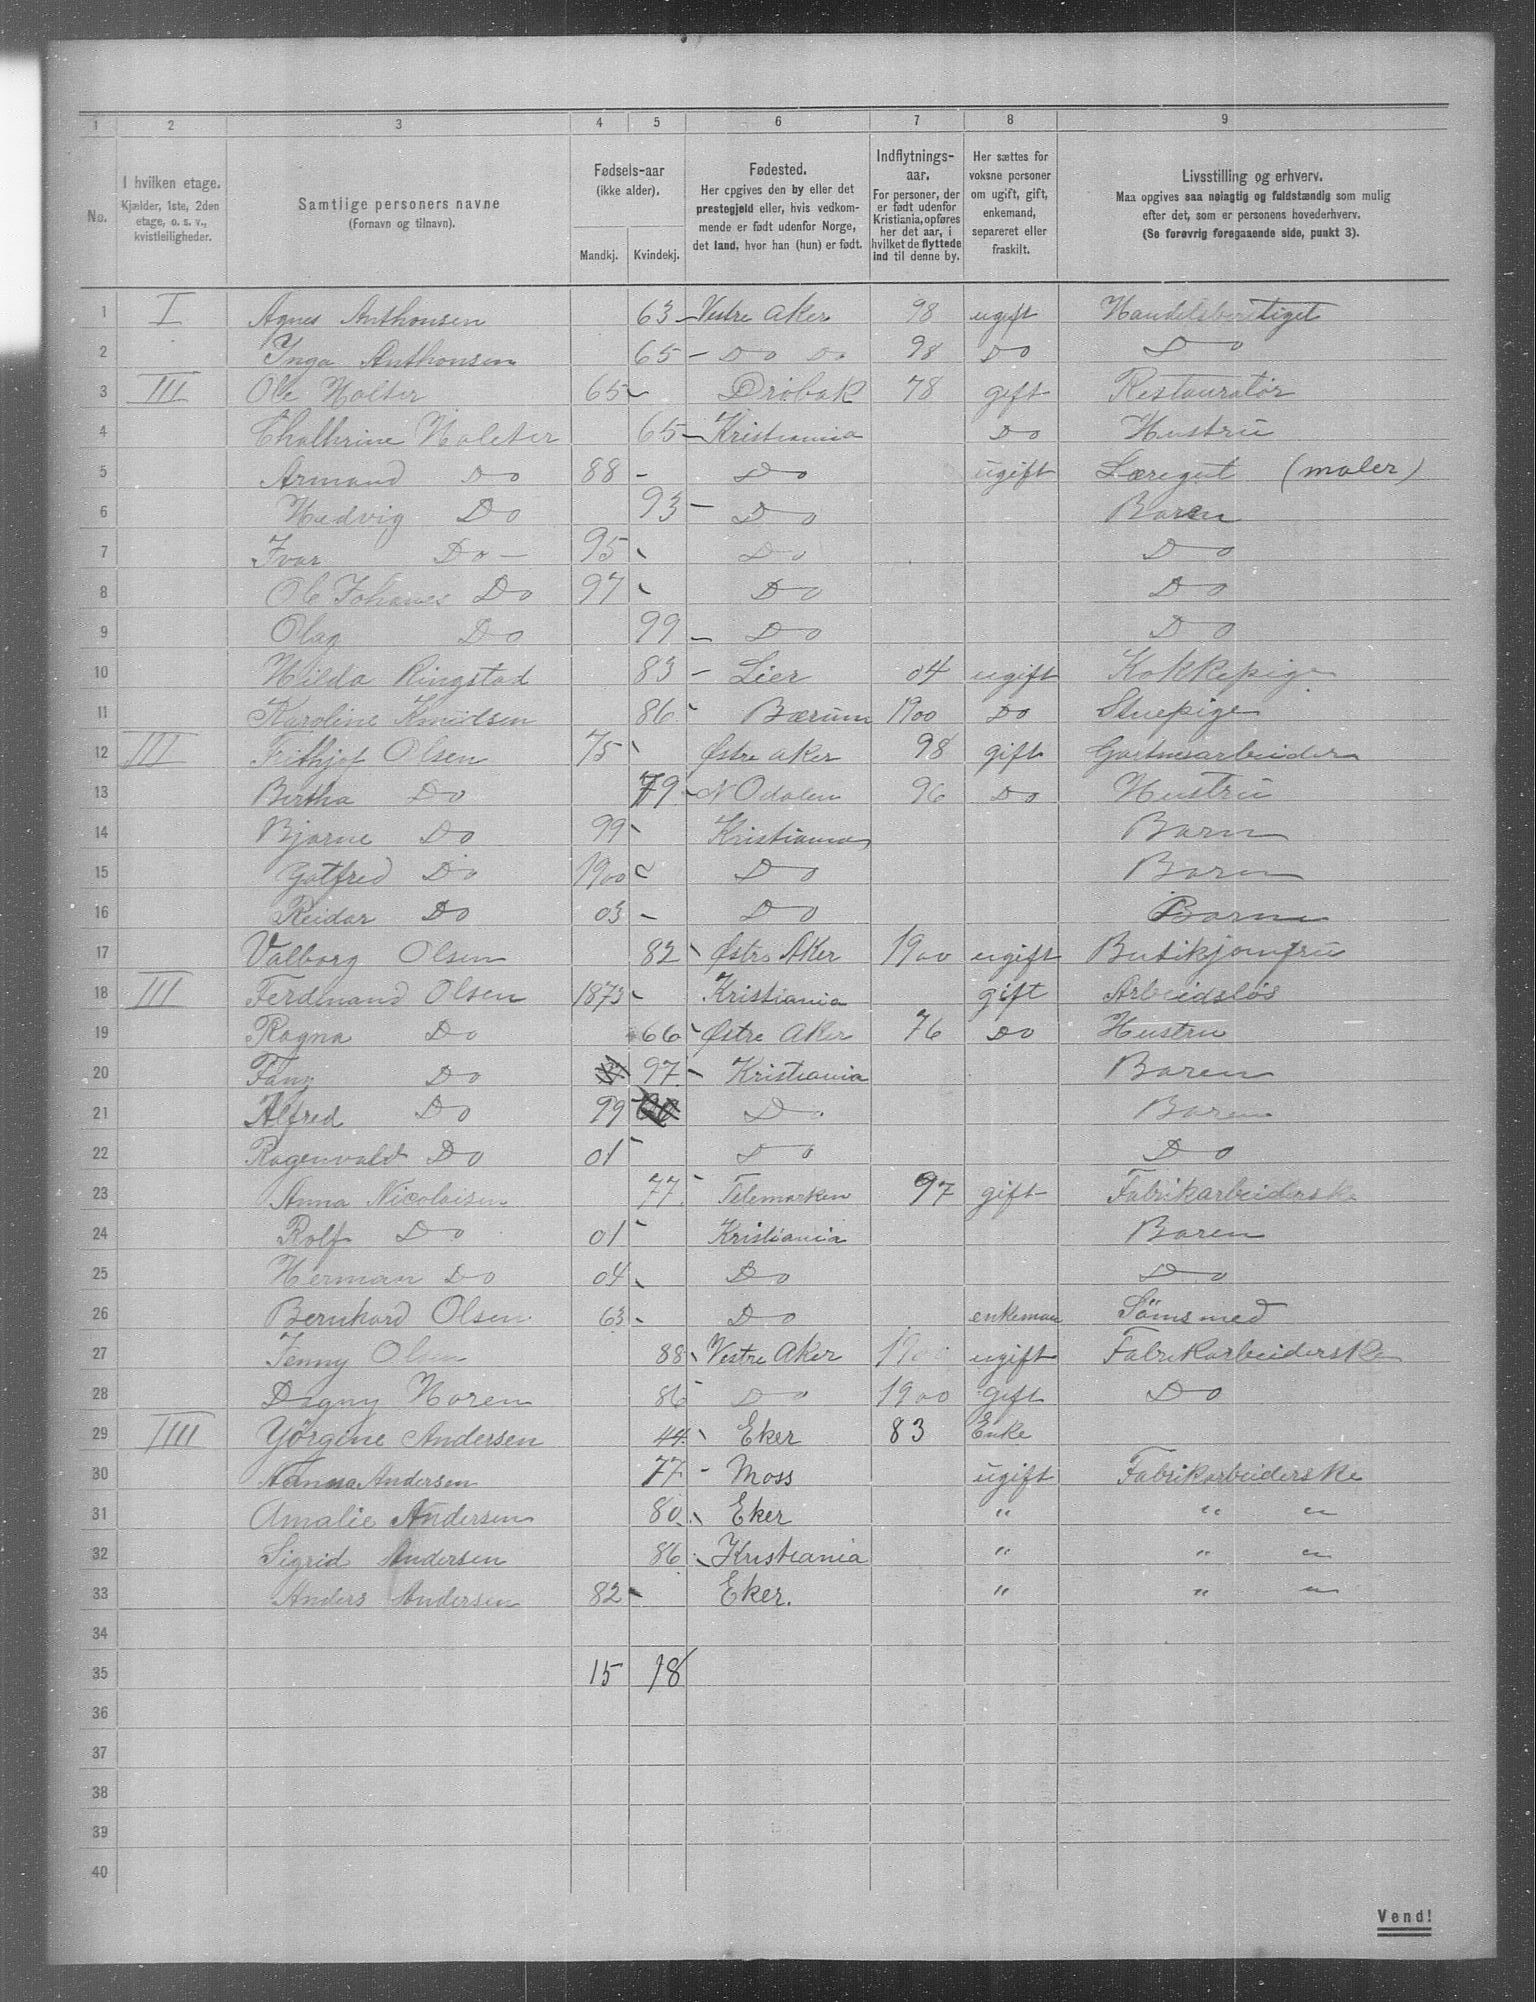 1 2 3 4 5 6 7 8 9
No.
I hvilken etage. Kjælder, 1ste, 2den etage, o. s. v., kvistleiligheder.
Samtlige personers navne (Fornavn og tilnavn).
Fødsels-aar (ikke alder). Mandkj. Kvindekj.
Fødested. Her opgives den by eller det prestegjeld eller, hvis vedkommende er født udenfor Norge, det land, hvor han (hun) er født.
Indflytnings-aar. For personer, der er født udenfor Kristiania, opføres her det aar, i hvilket de flyttede ind til denne by.
Her sættes for voksne personer om ugift, gift, enkemand, separeret eller fraskilt.
Livsstilling og erhverv. Maa opgives saa nøiagtig og fuldstændig som mulig efter det, som er personens hovederhverv. (Se forøvrig foregaaende side, punkt 3).
1 I Agnes Anthonsen 63 – Vestre Aker 98 ugift Handelsberetiget
2 Inga Anthonsen 65 – Do Do 98 Do Do
3 III Ole Holter 65 – Drøbak 78 gift Restauratør
4 Chathrine Holeter 65 – Kristiania Do Hustru
5 Armand Do 88 – Do ugift Læregut (maler)
6 Hedvig Do 93 – Do Baren
7 Ivar Do – 95 Do Do
8 Ole Johanes Do 97 Do Do
9 Olag Do 99 – Do Do
10 Hilda Ringstad 83 – Lier 04 ugift Kokkepige
11 Karoline Knudsen 86 Bærum 1900 Do Stuepige
12 III Frithjof Olsen 75 Østre Aker 98 gift
13 Birtha Do 79 – N Odalen 96 Do Hustru
14 Bjarne Do 99 – Kristiania Barn
15 Gotfred Do 1900 Do Baren
16 Reidar Do 03 – Do Barn
17 Valborg Olsen 82 Østre Aker 1900 ugift Butikjomfru
18 III Ferdinand Olsen 1873 – Kristiania gift Arbeidsløs
19 Ragna Do 66 Østre Aker 76 Do Hustru
20 Fany Do 97 – Kristiania Baren
21 Alfred Do 99 Do Baren
22 Ragenvald Do 01 Do Do
23 Anna Nicolaisen 77 Telemarken 97 gift Fabrikarbeiderske
24 Rolf Do 01 Kristiania Baren
25 Herman Do 04 Do Do
26 Bernhard Olsen 63 – Do enkeman Sömsmed
27 Jenny Olsen 88 Vestre Aker 1900 ugift Fabrikarbeiderske
28 Dagny Horen 86 Do 1900 gift Do
29 IIII Yörgine Andersen 44 Eker 83 Enke
30 Andersen 77 – Moss ugift Fabrikarbeiderske
31 Amalie Andersen 80 Eker " " "
32 Sigrid Andersen 86 Kristiania " " "
33 Anders Andersen 82 – Eker. " " "
34
35 15 18
36
37
38
39
40
Vend!